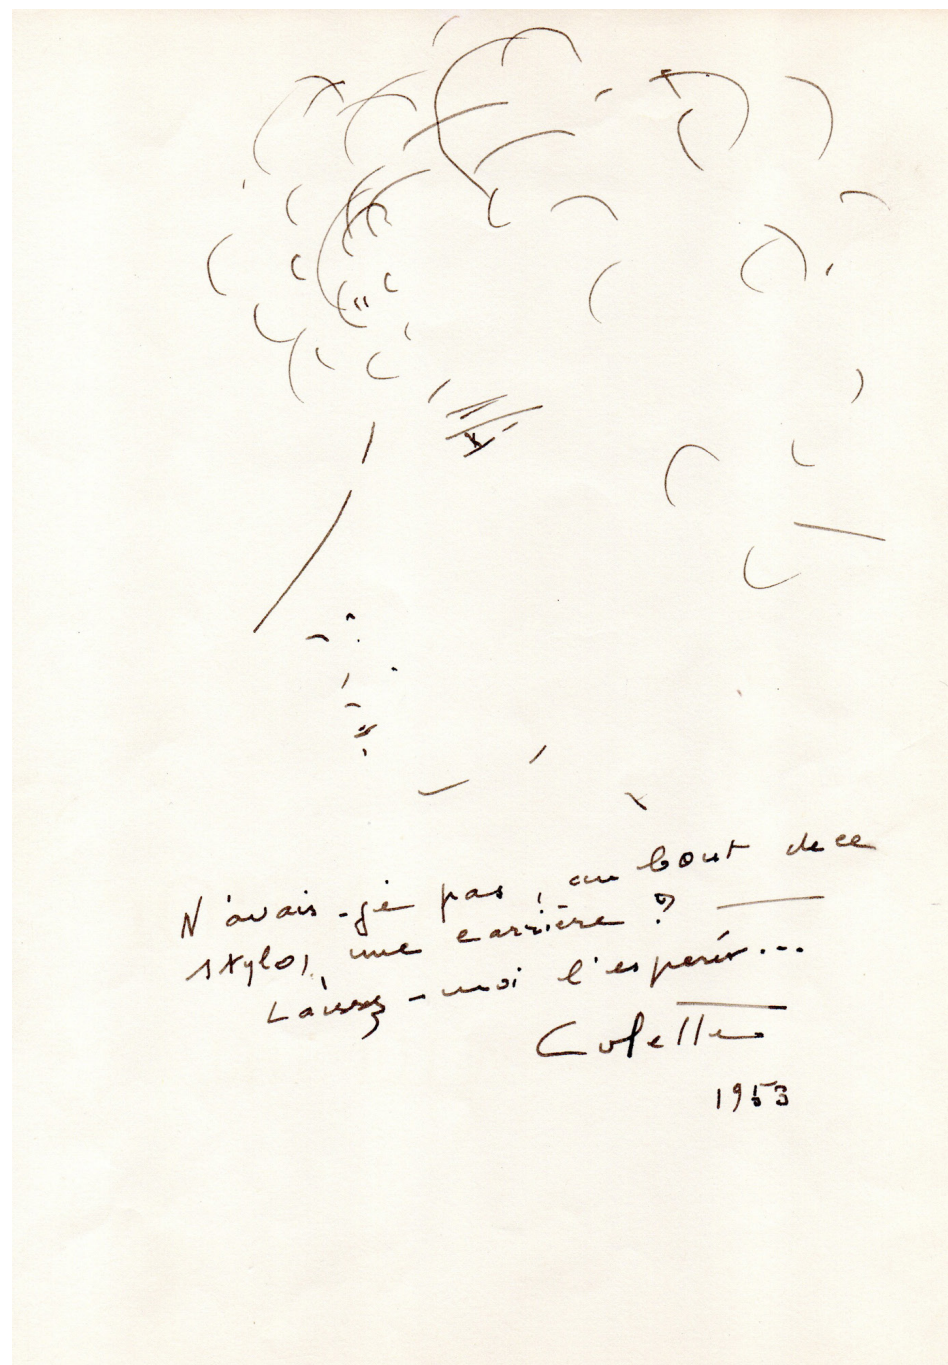 N'avais-je pas, au bout de ce
stylo, une carrière ?
Laissez-moi l'espérer...
Colette
1953